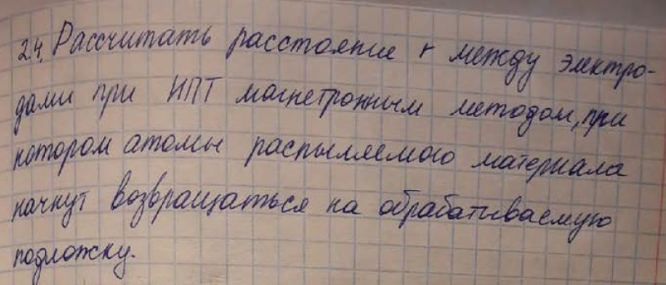 24. Рассчитать расстояние r между электро-
дами при НПТ магнетронным методом, при
котором атомы распыляемого материала
начнут возвращаться на обрабатываемую
подложку.